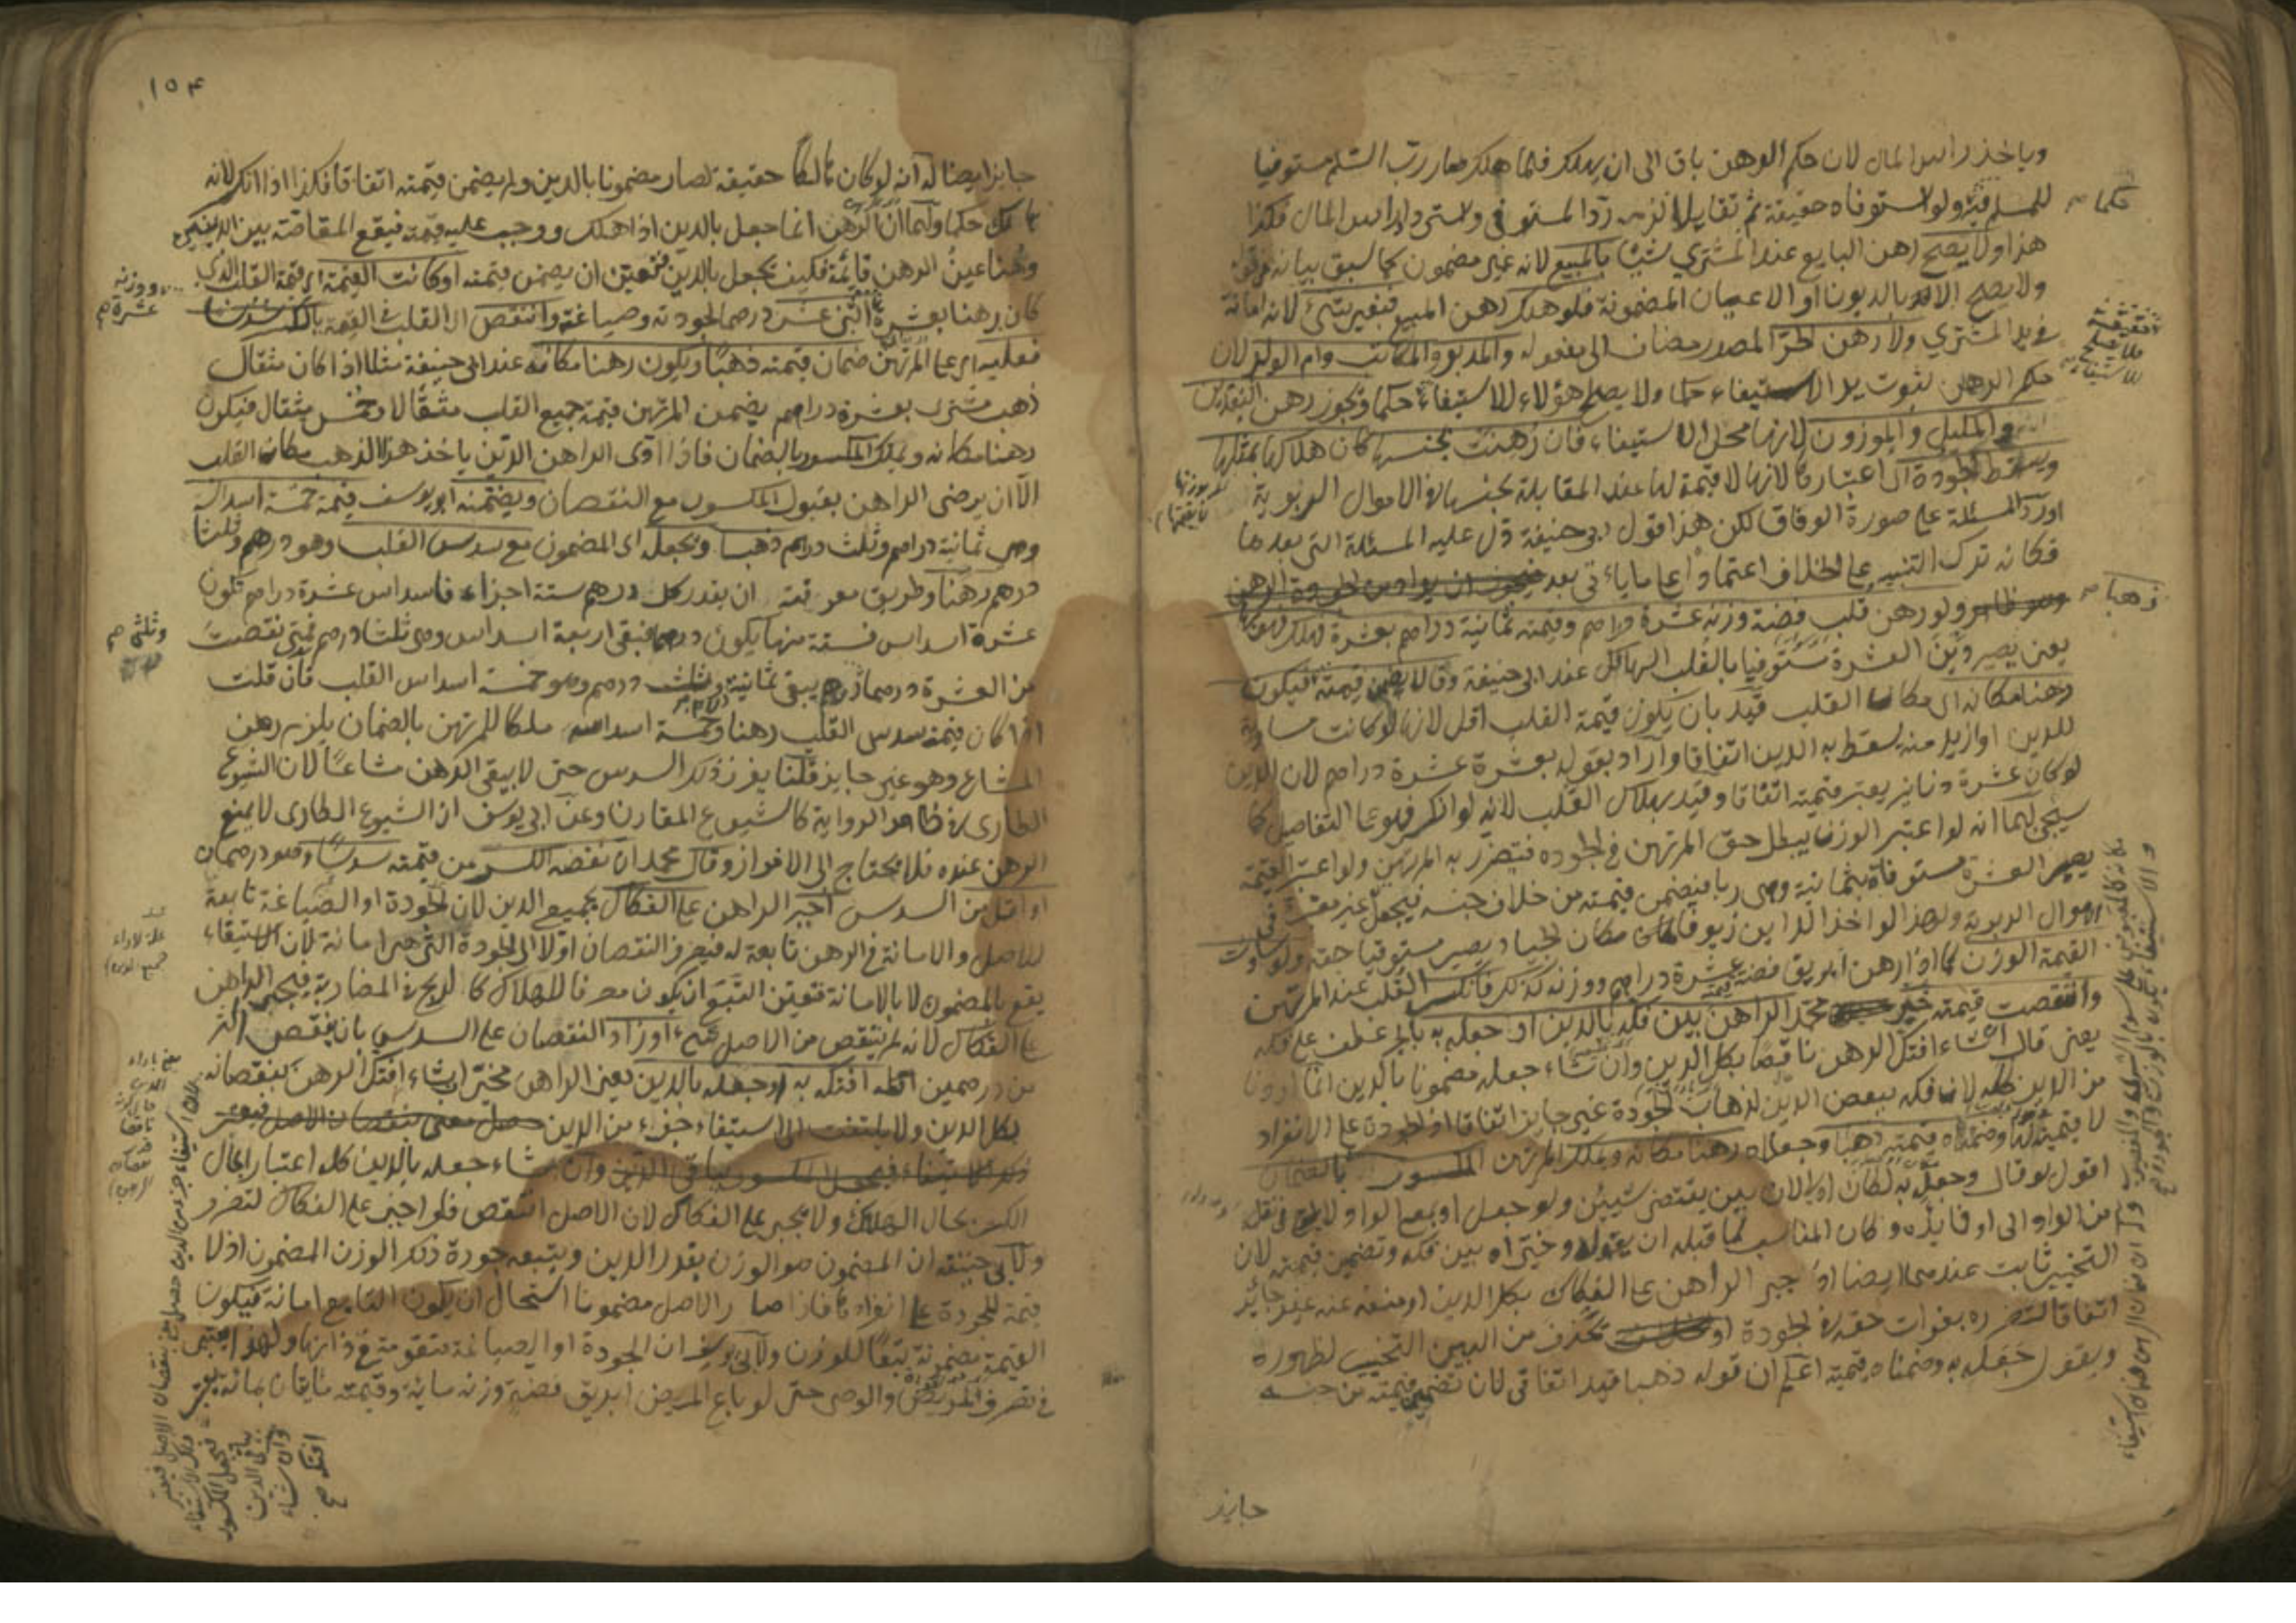 وياخذ راس المال لان حكم الرهن باق الى ان يهلك فلما هلك صار رب السلم مستوفيا
للمسلم فيه ولو استوفاه حقيقة ثم تقايلا لزمه رد المستوفى واسترداد راس المال فكذا
حكما صح
هذا ولا يصح رهن البايع عند المشتري شيئا بالمبيع لانه غير مضمون كما سبق بيانه في قوله
ولا يصح الا بالديون او الاعيان المضمونة فلو هلك رهن المبيع فبغير شئ لانه امانة
في يد المشتري ولا رهن الحر المصدر مضاف الى مفعوله والمدبر والمكاتب وام الولد لان
حكم الرهن ثبوت يد الاستيفاء حكما ولا يصلح هؤلاء للاستيفاء حكما ويجوز رهن النقدين
والمكيل والموزون لانها محل الاستيفاء فان رهنت بجنسها كان هلاكها بمثلها
ويسقط الجودة اى اعتبارها لانها لا قيمة لها عند المقابلة بجنسها في الاموال الربوية
اورد المسئلة على صورة الوفاق لكن هذا قول ابى حنيفة دل عليه المسئلة التى بعدها
فكانه ترك التنبيه على الخلاف اعتمادا على ما ياتى بعد
ولو رهن قلب فضة وزنه عشرة دراهم وقيمته ثمانية دراهم بعشرة فهلك فهو بها
ذهبا صح
يعنى يصير دين العشرة مستوفيا بالقلب الهالك عند ابى حنيفة وقالا يضمن قيمته فيكون
رهنا مكانه اى مكان القلب قيد بان يكون قيمة القلب اقل لانها لو كانت مساوية
للدين او ازيد منه يسقط به الدين اتفاقا واراد بقوله بعشرة عشرة دراهم لان الدين
لو كان عشرة دنانير يعتبر قيمته اتفاقا وقيد بهلاك القلب لانه لو انكسر فهو على التفاصيل كما
سيجئ لهما انه لو اعتبر الوزن يبطل حق المرتهن في الجودة فيتضرر به المرتهن ولو اعتبر القيمة
يصير العشرة مستوفاة بثمانية وهى ربا فيضمن قيمته من خلاف جنسه فيجعل
الاموال الربوية ولهذا لو اخذ الداين زيوفا مكان الجياد يصير مستوفيا حقه ولو ساوت
القيمة الوزن كما اذا رهن ابريق فضة قيمته عشرة دراهم ووزنه كذلك فانكسر القلب عند المرتهن
وانتقصت قيمته خير محمد الراهن بين فكه بالدين او جعله به بالجر عطف على فكه
يعنى قال ان شاء افتك الرهن ناقصا بكل الدين وان شاء جعله مضمونا بالدين
من الدين كله لان فكه ببعض الدين لذهاب الجودة غير جايز اتفاقا اذ الجودة على الانفراد
لا قيمة لها وضمناه قيمته ذهبا وجعلاه رهنا مكانه ويملك المرتهن المكسور بالضمان
اقول لو قال وجعله به لكان اولى لان بين يقتضى شيئين ولو جعل او بمعنى الواو لا يبقى في نقل
من الواو الى او فايدة وكان المناسب لما قبله ان يقول وخيراه بين فكه وتضمين قيمته لان
التخيير ثابت عندهما ايضا اذ جبر الراهن على الفكاك بكل الدين او منعه عنه غير جائز
اتفاقا لتضرره بفوات حقه في الجودة تحذف من البين التخيير لظهوره
ويقول جعله به وضمناه قيمته اعلم ان قوله ذهبا قيد اتفاقى لان تضمين قيمته من جنسه
جايز
١٥٤
جايز ايضا له انه لو كان هالكا حقيقة لصار مضمونا بالدين ولم يضمن قيمته اتفاقا فكذا اذا انكسر لانه
هالك حكما ولهما ان الرهن انما جعل بالدين اذا هلك ووجب عليه قيمته فيقع المقاصة بين الدينين
وهنا عين الرهن قائمة فكيف يجعل بالدين فتعين ان يضمن قيمته او كانت القيمة اى قيمة القلب الذى
ووزنه عشرة صح
كان رهنا بعشرة اثنى عشر درهما لجودته وصياغته وانتقص اى القلب في القيمة بالكسر سدسا
فعليه اى على المرتهن ضمان قيمته ذهبا ويكون رهنا مكانه عند ابى حنيفة مثلا اذا كان مثقال
ذهب مشترى بعشرة دراهم يضمن المرتهن قيمة جميع القلب مثقالا وخمس مثقال فيكون
رهنا مكانه ويملك المكسور بالضمان فاذا ادى الراهن الدين ياخذ هذا الذهب مكان القلب
الا ان يرضى الراهن بقبول المكسور مع النقصان ويضمنه ابو يوسف قيمة خمسة اسداسه
وهى ثمانية دراهم وثلث درهم ذهبا ويجعل اى المضمون مع سدس القلب وهو درهم وثلثا
درهم رهنا وطريق معرفته ان يقدر كل درهم ستة اجزاء فاسداس عشرة دراهم تكون
عشرة اسداس فستة منها يكون درهما فبقى اربعة اسداس وهى ثلثا درهم فمتى نقصت
وثلثى صح
من العشرة درهما يبقى ثمانية وثلث درهم وهو خمسة اسداس القلب فان قلت
اذا كان قيمة سدس القلب رهنا وخمسة اسداسه ملكا للمرتهن بالضمان يلزم رهن
المشاع وهو غير جايز قلنا يفرز ذلك السدس حتى لا يبقى الرهن مشاعا لان الشيوع
الطارى في ظاهر الرواية كالشيوع المقارن وعن ابى يوسف ان الشيوع الطارى لا يمنع
الرهن عنده فلا يحتاج الى الافراز وقال محمد ان نقصه الكسر من قيمته سدسا وهو درهمان
او اقل من السدس اجبر الراهن على الفكاك بجميع الدين لان الجودة او الصياغة تابعة
للاصل والامانة في الرهن تابعة له فيصرف النقصان اولا الى الجودة التى هى امانة لان الاستيفاء
يقع بالمضمون لا بالامانة فتعين التبع ان يكون مصرفا للهلاك كالربح في المضاربة فيجبر الراهن
على الفكاك لانه لم ينتقص من الاصل شئ او زاد النقصان على السدس بان ينقص اكثر
من درهمين افتكه به او جعله بالدين يعنى الراهن مخير ان شاء افتك الرهن بنقصانه
بكل الدين ولا يلتفت الى استيفاء جزء من الدين حصل معنى بنقصان الاصل فيعتبر
ذلك الاستيفاء فيجعل المكسور بباقى الدين وان شاء جعله بالدين كله اعتبارا لحال
الكسر بحال الهلاك ولا يجبر على الفكاك لان الاصل انتقص فلو اجبر على الفكاك لتضرر
ولابى حنيفة ان المضمون هو الوزن بقدر الدين ويتبعه جودة ذلك الوزن المضمون اذ لا
قيمة للجودة على انفرادها فاذا صار الاصل مضمونا استحال ان يكون التابع امانة فيكون
القيمة مضمونة تبعا للوزن ولابى يوسف ان الجودة او الصياغة متقومة في ذاتها ولهذا يعتبر
في تصرف المريض والوصى حتى لو باع المريض ابريق فضة وزنه مائة وقيمته مائتان بمائة يعتبر